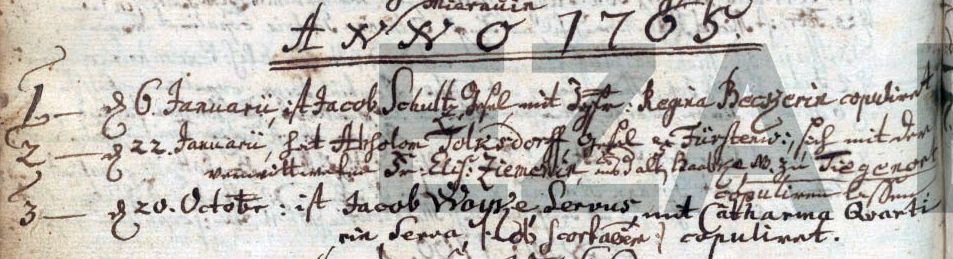 ANNO 1765.
1 — d 6 Januarii, ist Jacob Schultz Gesel mit Jgfr: Regina copuliret
2 — d 22. Januarii, hat Absolom Tolksdorff Gesel ex Fürstenw:, sich mit der
verwittwete Fr: Elis: Ziemerin, zu Tiegenort
copuliren lassen
3 — d 20. Octobr: ist Jacob Woyke Servus, mit Catharina Quarti
rin Serva, copuliret.